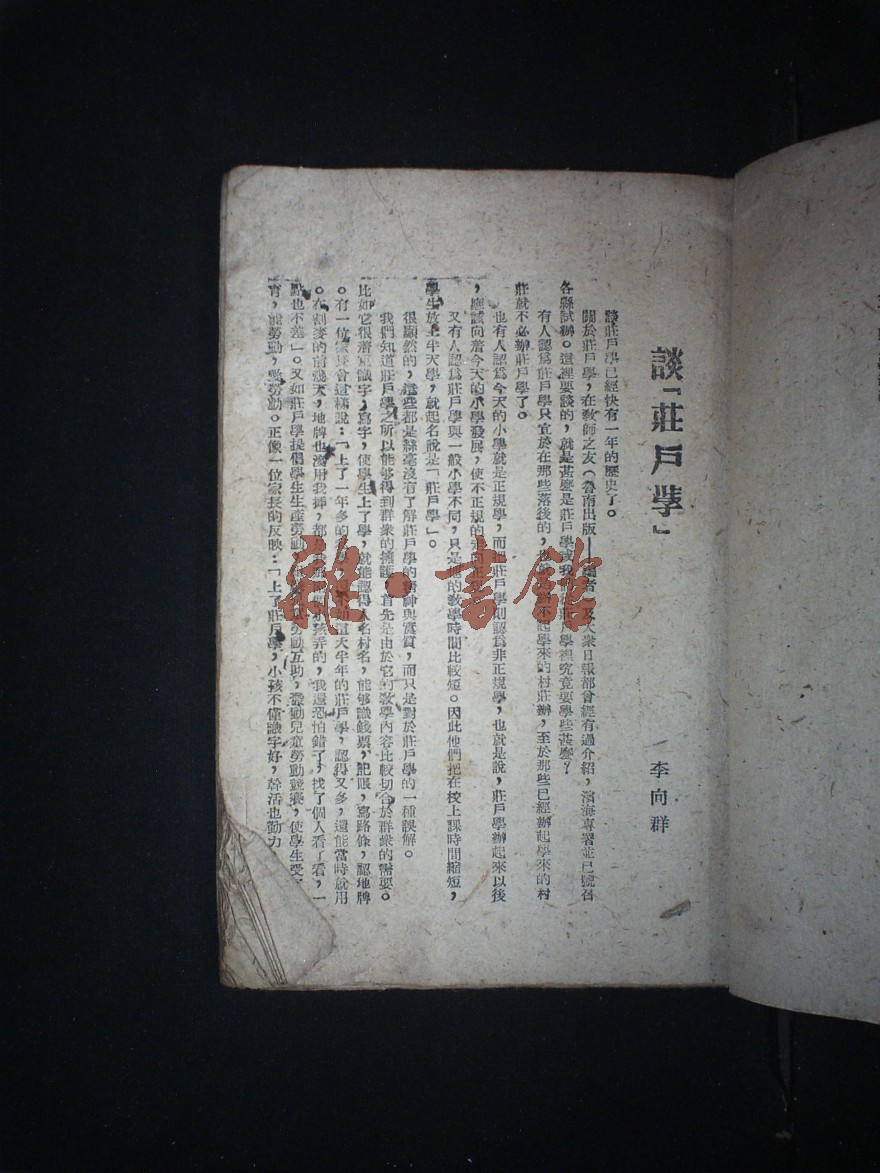 談「莊戶學」
李向羣
談莊戶學已經快有一年的歷史了。
關於莊戶學,在敎師之友(魯南出版——編者)及大衆日報都曾經有過介紹,濱海專署並已號召
各縣試辦。這裡要談的,就是甚麼是莊戶學或我們在莊戶學裡究竟要學些甚麼?
有人認爲莊戶學只宜於在那些落後的,起學來的村莊辦,至於那些已經辦起學來的村
莊就不必辦莊戶學了。
也有人認爲今天的小學就是正規學,而把莊戶學則認爲非正規學,也就是說,莊戶學辦起來以後
,應該向着今天的小學發展,使不正規的走向正
又有人認爲莊戶學與一般小學不同,只是他的敎學時間比較短。因此他們把在校上課時間縮短,
學生放上半天學,就起名說是「莊戶學」。
很顯然的,這些都是絲毫沒有了解莊戶學的精神與實質,而只是對於莊戶學的一種誤解。
我們知道莊戶學之所以能够得到群衆的擁護,首先是由於它的敎學內容比較切合於群衆的需要。
比如它很着重識字,寫字,使學生上了學,就能認得人名村名,能够識錢票,記賬,寫路條,認地牌
。有一位家長曾這樣說:「上了一年多的 不如這大半年的莊戶學,認得又多,還能當時就用
。在割麥的前幾天,地牌也沒用我揷,都是 小孩弄的,我還恐怕錯了,找了個人看了看,一
點也不差」。又如莊戶學提倡學生生產勞動, 勞動互助,發動兒童勞動競賽,使學生受
育,能勞動,愛勞動。正像一位家長的反映:「上了莊戶學,小孩不僅識字好,幹活也勤力
雜·書館